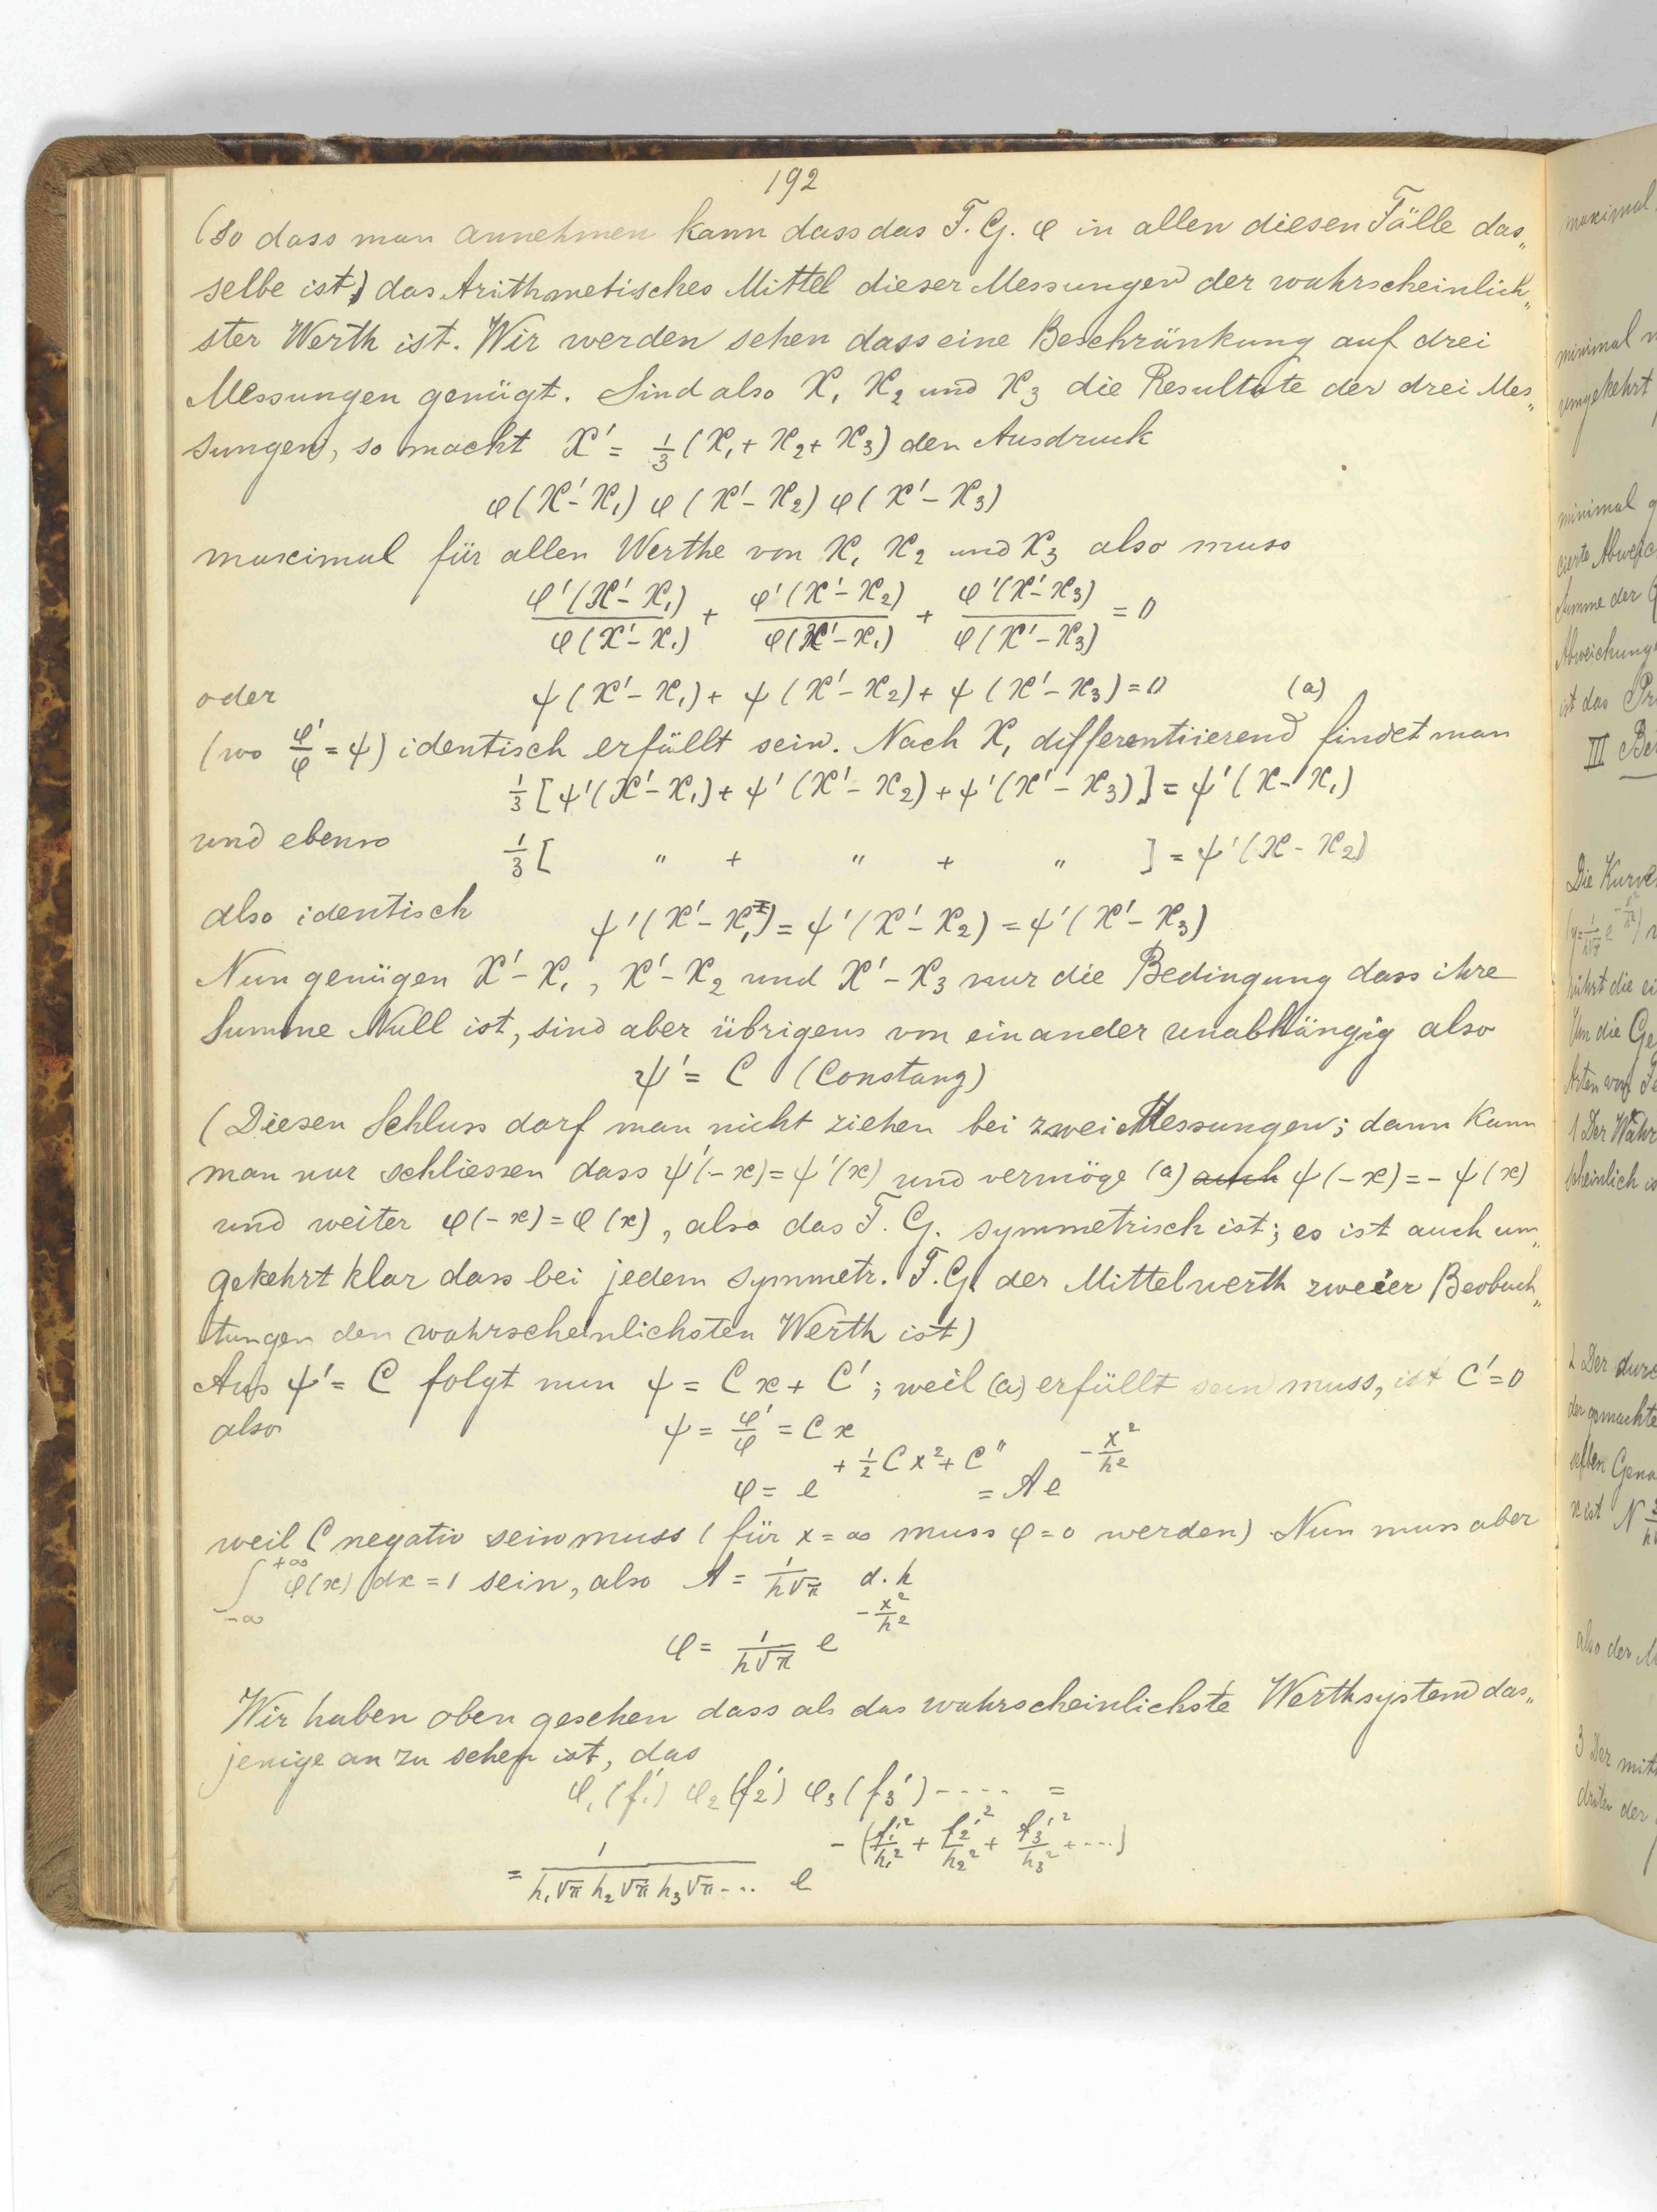 192
(so dass man annehmen kann dass das F. G. φ in allen diesen Fälle das„
selbe ist) das Arithmetisches Mittel dieser Messungen der wahrscheinlich„
ster Werth ist. Wir werden sehen dass eine Beschränkung auf drei
Messungen genügt. Sind also X₁ X₂ und X₃ die Resultate der drei Mes„
sungen, so macht X' = 1/3 (X₁ + X₂ + X₃) den Ausdruck
φ(X' - X₁) φ(X' - X₂) φ(X' - X₃)
maximal für allen Werthe von X₁ X₂ und X₃ also muss
φ'(X' - X₁)/φ(X' - X₁) + φ'(X' - X₂)/φ(X' - X₁) + φ'(X' - X₃)/φ(X' - X₃) = 0
oder ψ(X' - X₁) + ψ(X' - X₂) + ψ(X' - X₃) = 0 (a)
(wo φ'/φ = ψ) identisch erfüllt sein. Nach X₁ differentiierend findet man
1/3 [ψ'(X' - X₁) + ψ'(X' - X₂) + ψ'(X' - X₃)] = ψ'(X - X₁)
und ebenso 1/3 [ " + " + " ] = ψ'(X - X₂)
also identisch ψ'(X' - X₁) = ψ'(X' - X₂) = ψ'(X' - X₃)
Nun genügen X' - X₁, X' - X₂ und X' - X₃ nur die Bedingung dass ihre
Summe Null ist, sind aber übrigens von einander unabhängig also
ψ' = C (Constanz)
(Diesen Schluss darf man nicht ziehen bei zwei Messungen; dann kann
man nur schliessen dass ψ'(-x) = ψ'(x) und vermöge (a) auch ψ(-x) = - ψ(x)
und weiter φ(-x) = φ(x), also das F. G. symmetrisch ist; es ist auch um„
gekehrt klar dass bei jedem symmetr. F. G. der Mittelwerth zweier Beobach„
tungen den wahrscheinlichsten Werth ist)
Aus ψ' = C folgt nun ψ = Cx + C'; weil (a) erfüllt sein muss, ist C' = 0
also ψ = φ'/φ = Cx
φ = e^(+ 1/2 Cx² + C'') = A e^(-x²/h²)
weil C negativ sein muss (für x = ∞ muss φ = 0 werden) Nun muss aber
∫_{-∞}^{+∞} φ(x) dx = 1 sein, also A = 1/(h√π) d.h
φ = 1/(h√π) e^(-x²/h²)
Wir haben oben gesehen dass als das wahrscheinlichste Werthsystem das„
jenige an zu sehen ist, das
φ₁(f₁') φ₂(f₂') φ₃(f₃') - - - - =
= 1/(h₁√π h₂√π h₃√π - - -) e^(-(f₁'²/h₁² + f₂'²/h₂² + f₃'²/h₃² + ---))
maximal
minimal
umgekehrt
minimal
Summe der
Abweichung
ist das
III
Die Kurve
führt die
Um die
Arten von
1 Der
scheinlich
2 Der durc
der gemachte
x ist N
also der
3 Der